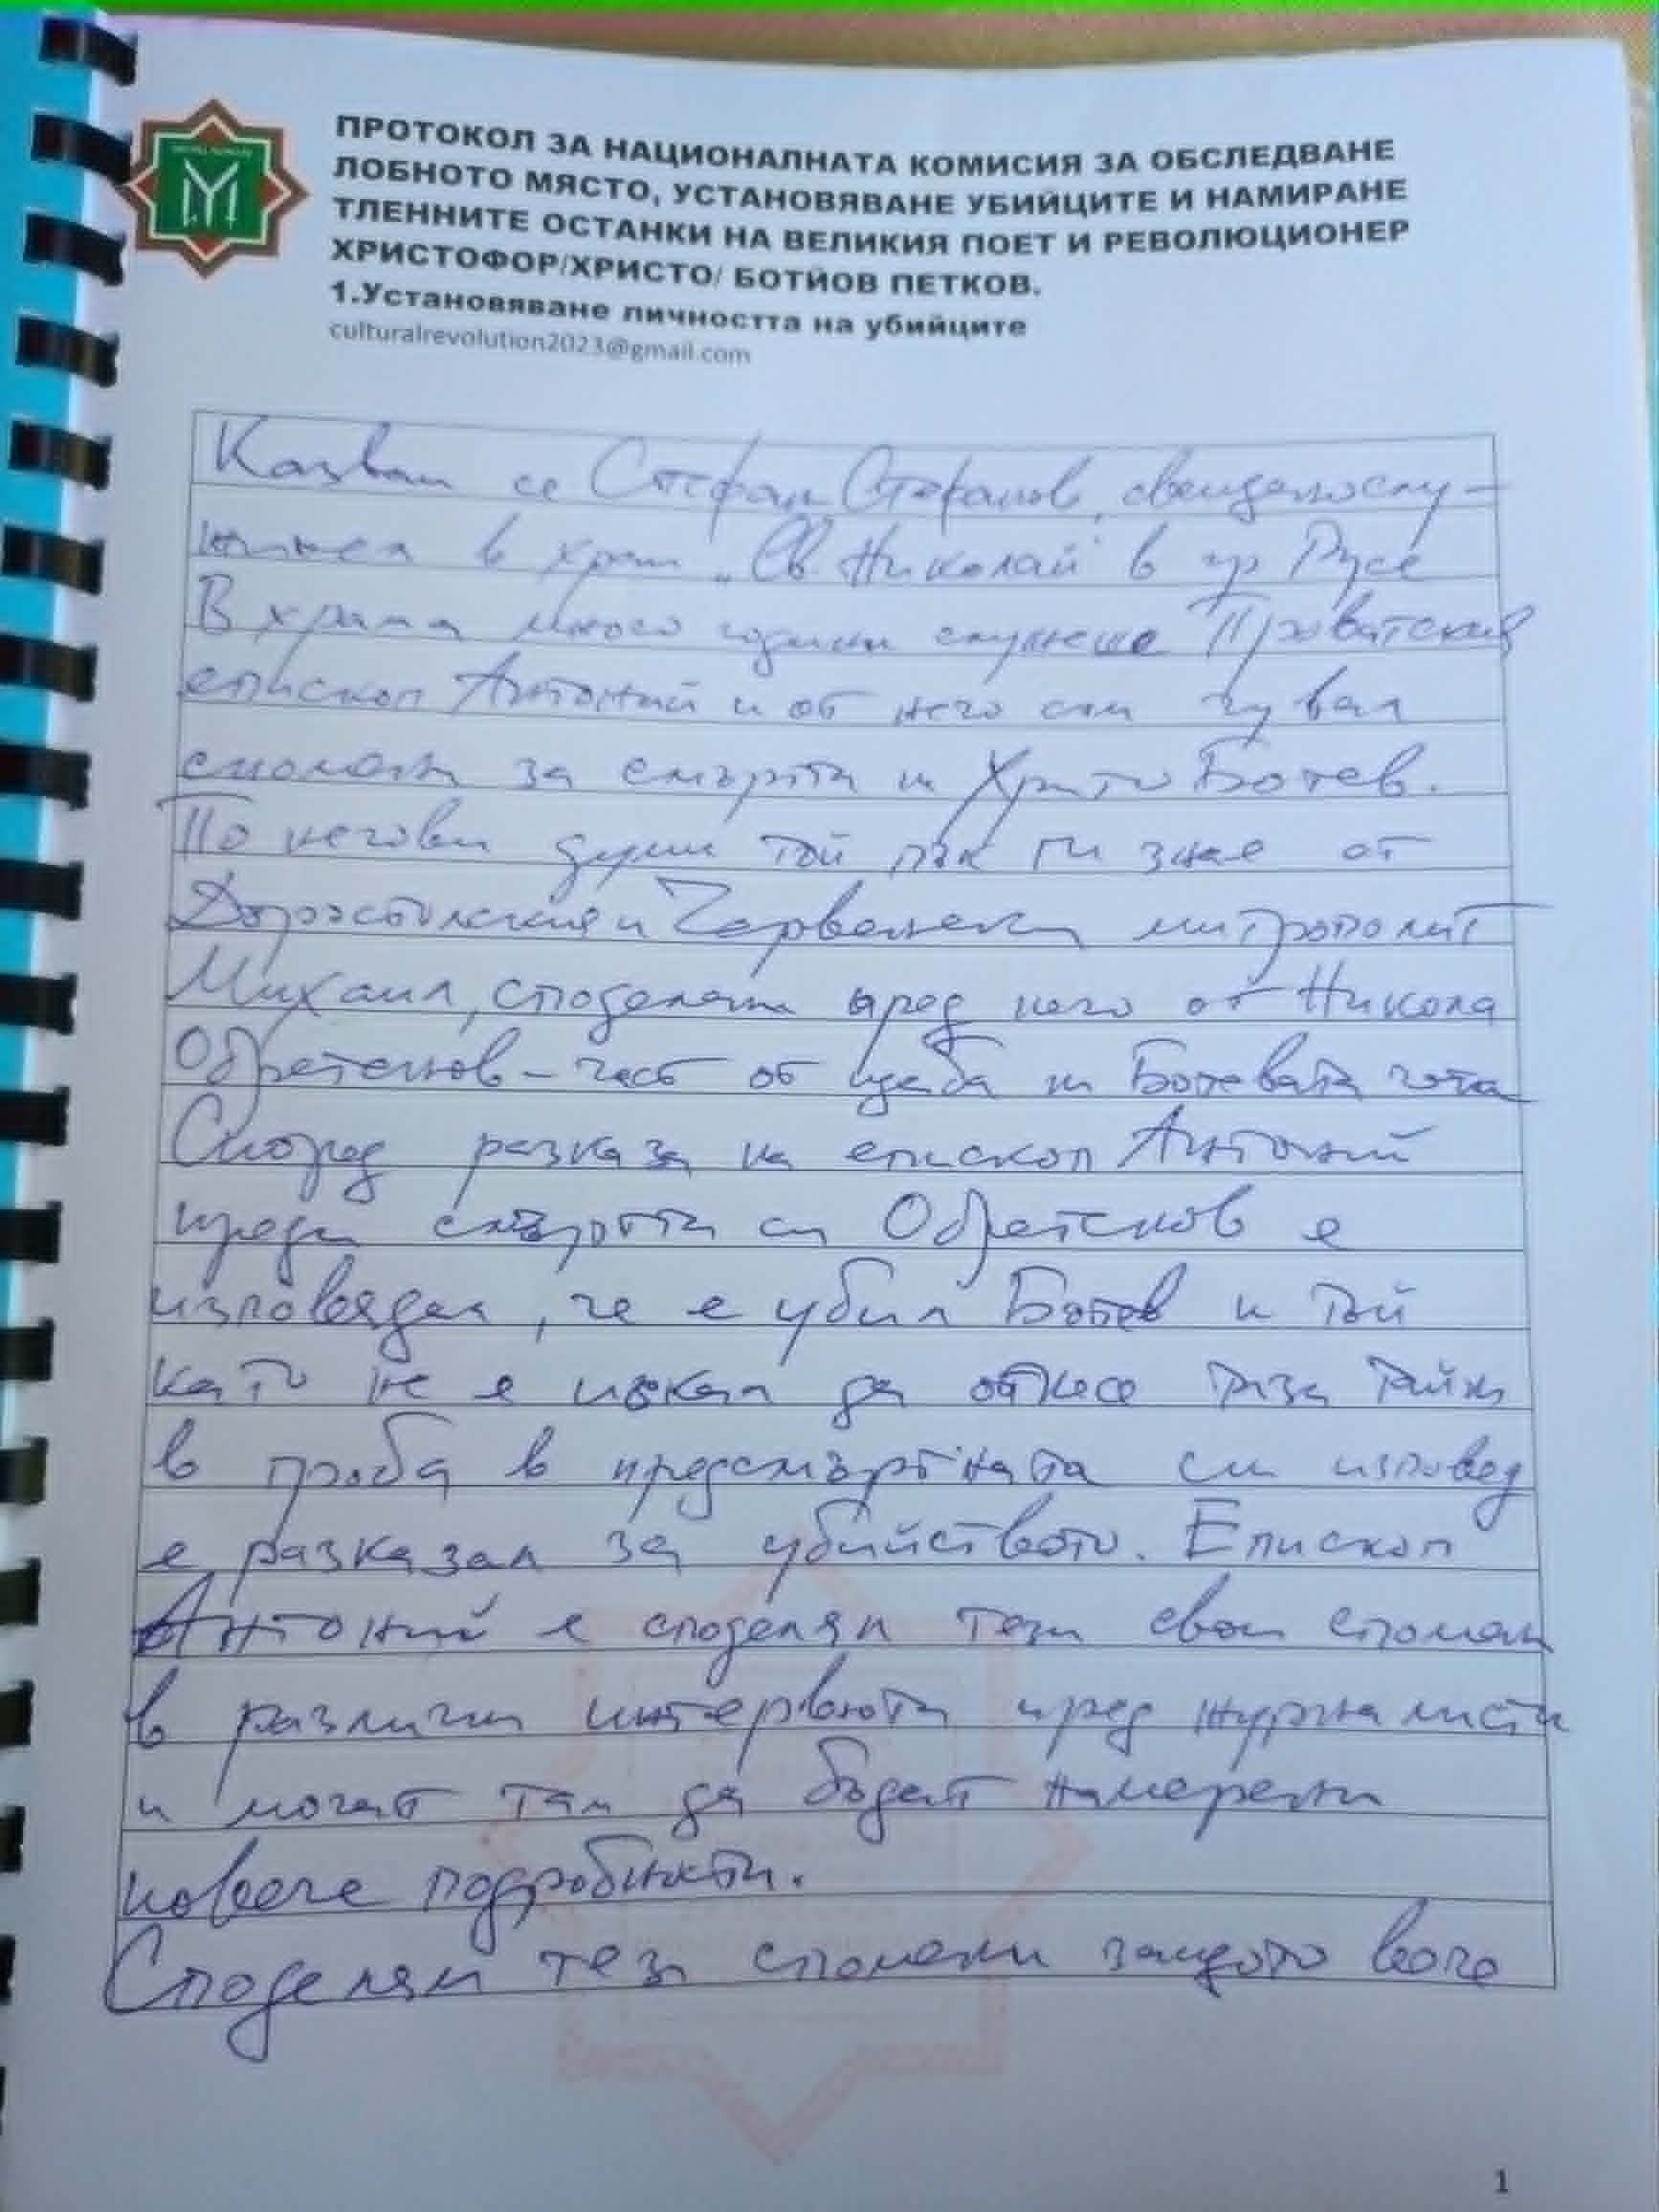 ПРОТОКОЛ ЗА НАЦИОНАЛНАТА КОМИСИЯ ЗА ОБСЛЕДВАНЕ
ЛОБНОТО МЯСТО, УСТАНОВЯВАНЕ УБИЙЦИТЕ И НАМИРАНЕ
ТЛЕННИТЕ ОСТАНКИ НА ВЕЛИКИЯ ПОЕТ И РЕВОЛЮЦИОНЕР
ХРИСТОФОР/ХРИСТО/ БОТЙОВ ПЕТКОВ.
1.Установяване личността на убийците
culturalrevolution2023@gmail.com
Казвам се Стефан Стефанов, свещенослу-
жител в храм "Св. Николай" в гр Русе
В храма много години служеше Проватския
епископ Антоний и от него съм чувал
спомени за смъртта на Христо Ботев.
По негови думи той пък ги знае от
Доростолския и Червенски митрополит
Михаил, споделени пред него от Никола
Обретенов - част от щаба на Ботевата чета
Според разказа на епископ Антоний
преди смъртта си Обретенов е
изповядал, че е убил Ботев и той
като не е искал да отнесе тази тайна
в гроба в предсмъртната си изповед
е разказал за убийството. Епископ
Антоний е споделял тези свои спомени
в различни интервюта пред журналисти
и могат там да бъдат намерени
повече подробности.
Споделям тези спомени защото вече
1